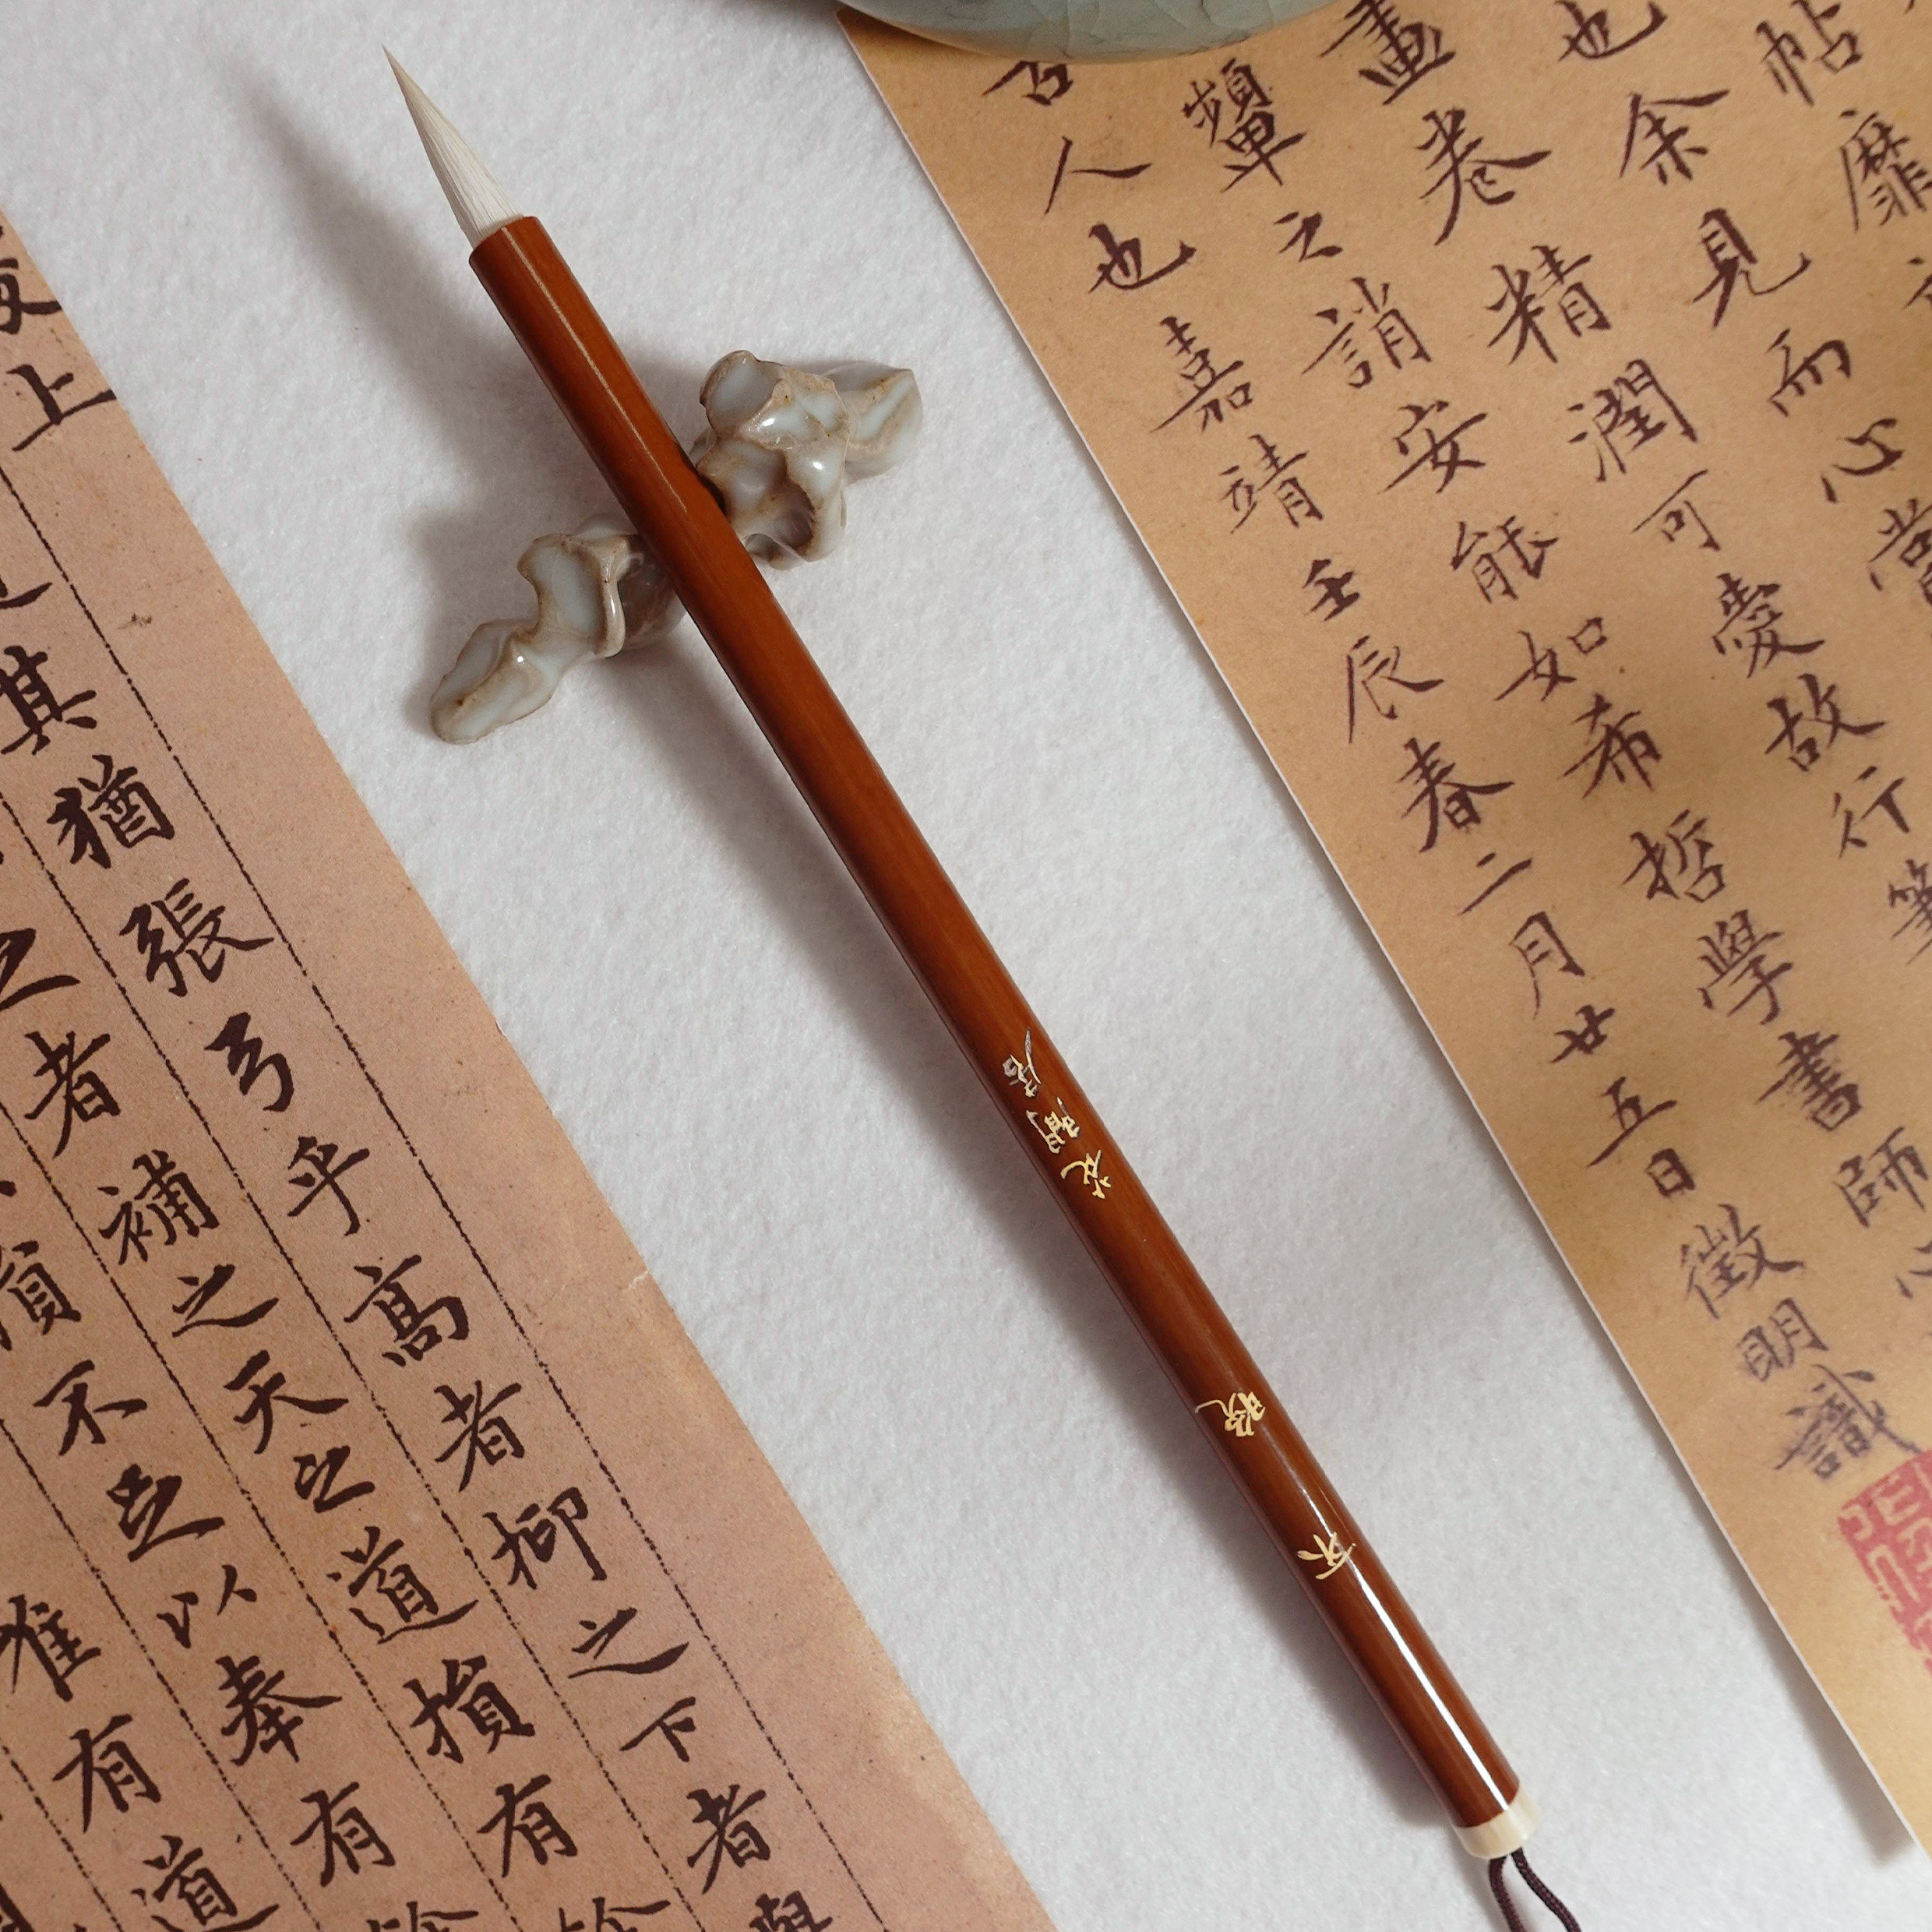 帖靡
也余見而心
畫卷精潤可愛故行筆
顰之誚安能如希哲學書師心
古人也嘉靖壬辰春二月廿五日徵明識
上
其猶張弓乎高者抑之下者與
之者補之天之道損有餘
損不足以奉有餘
唯有道